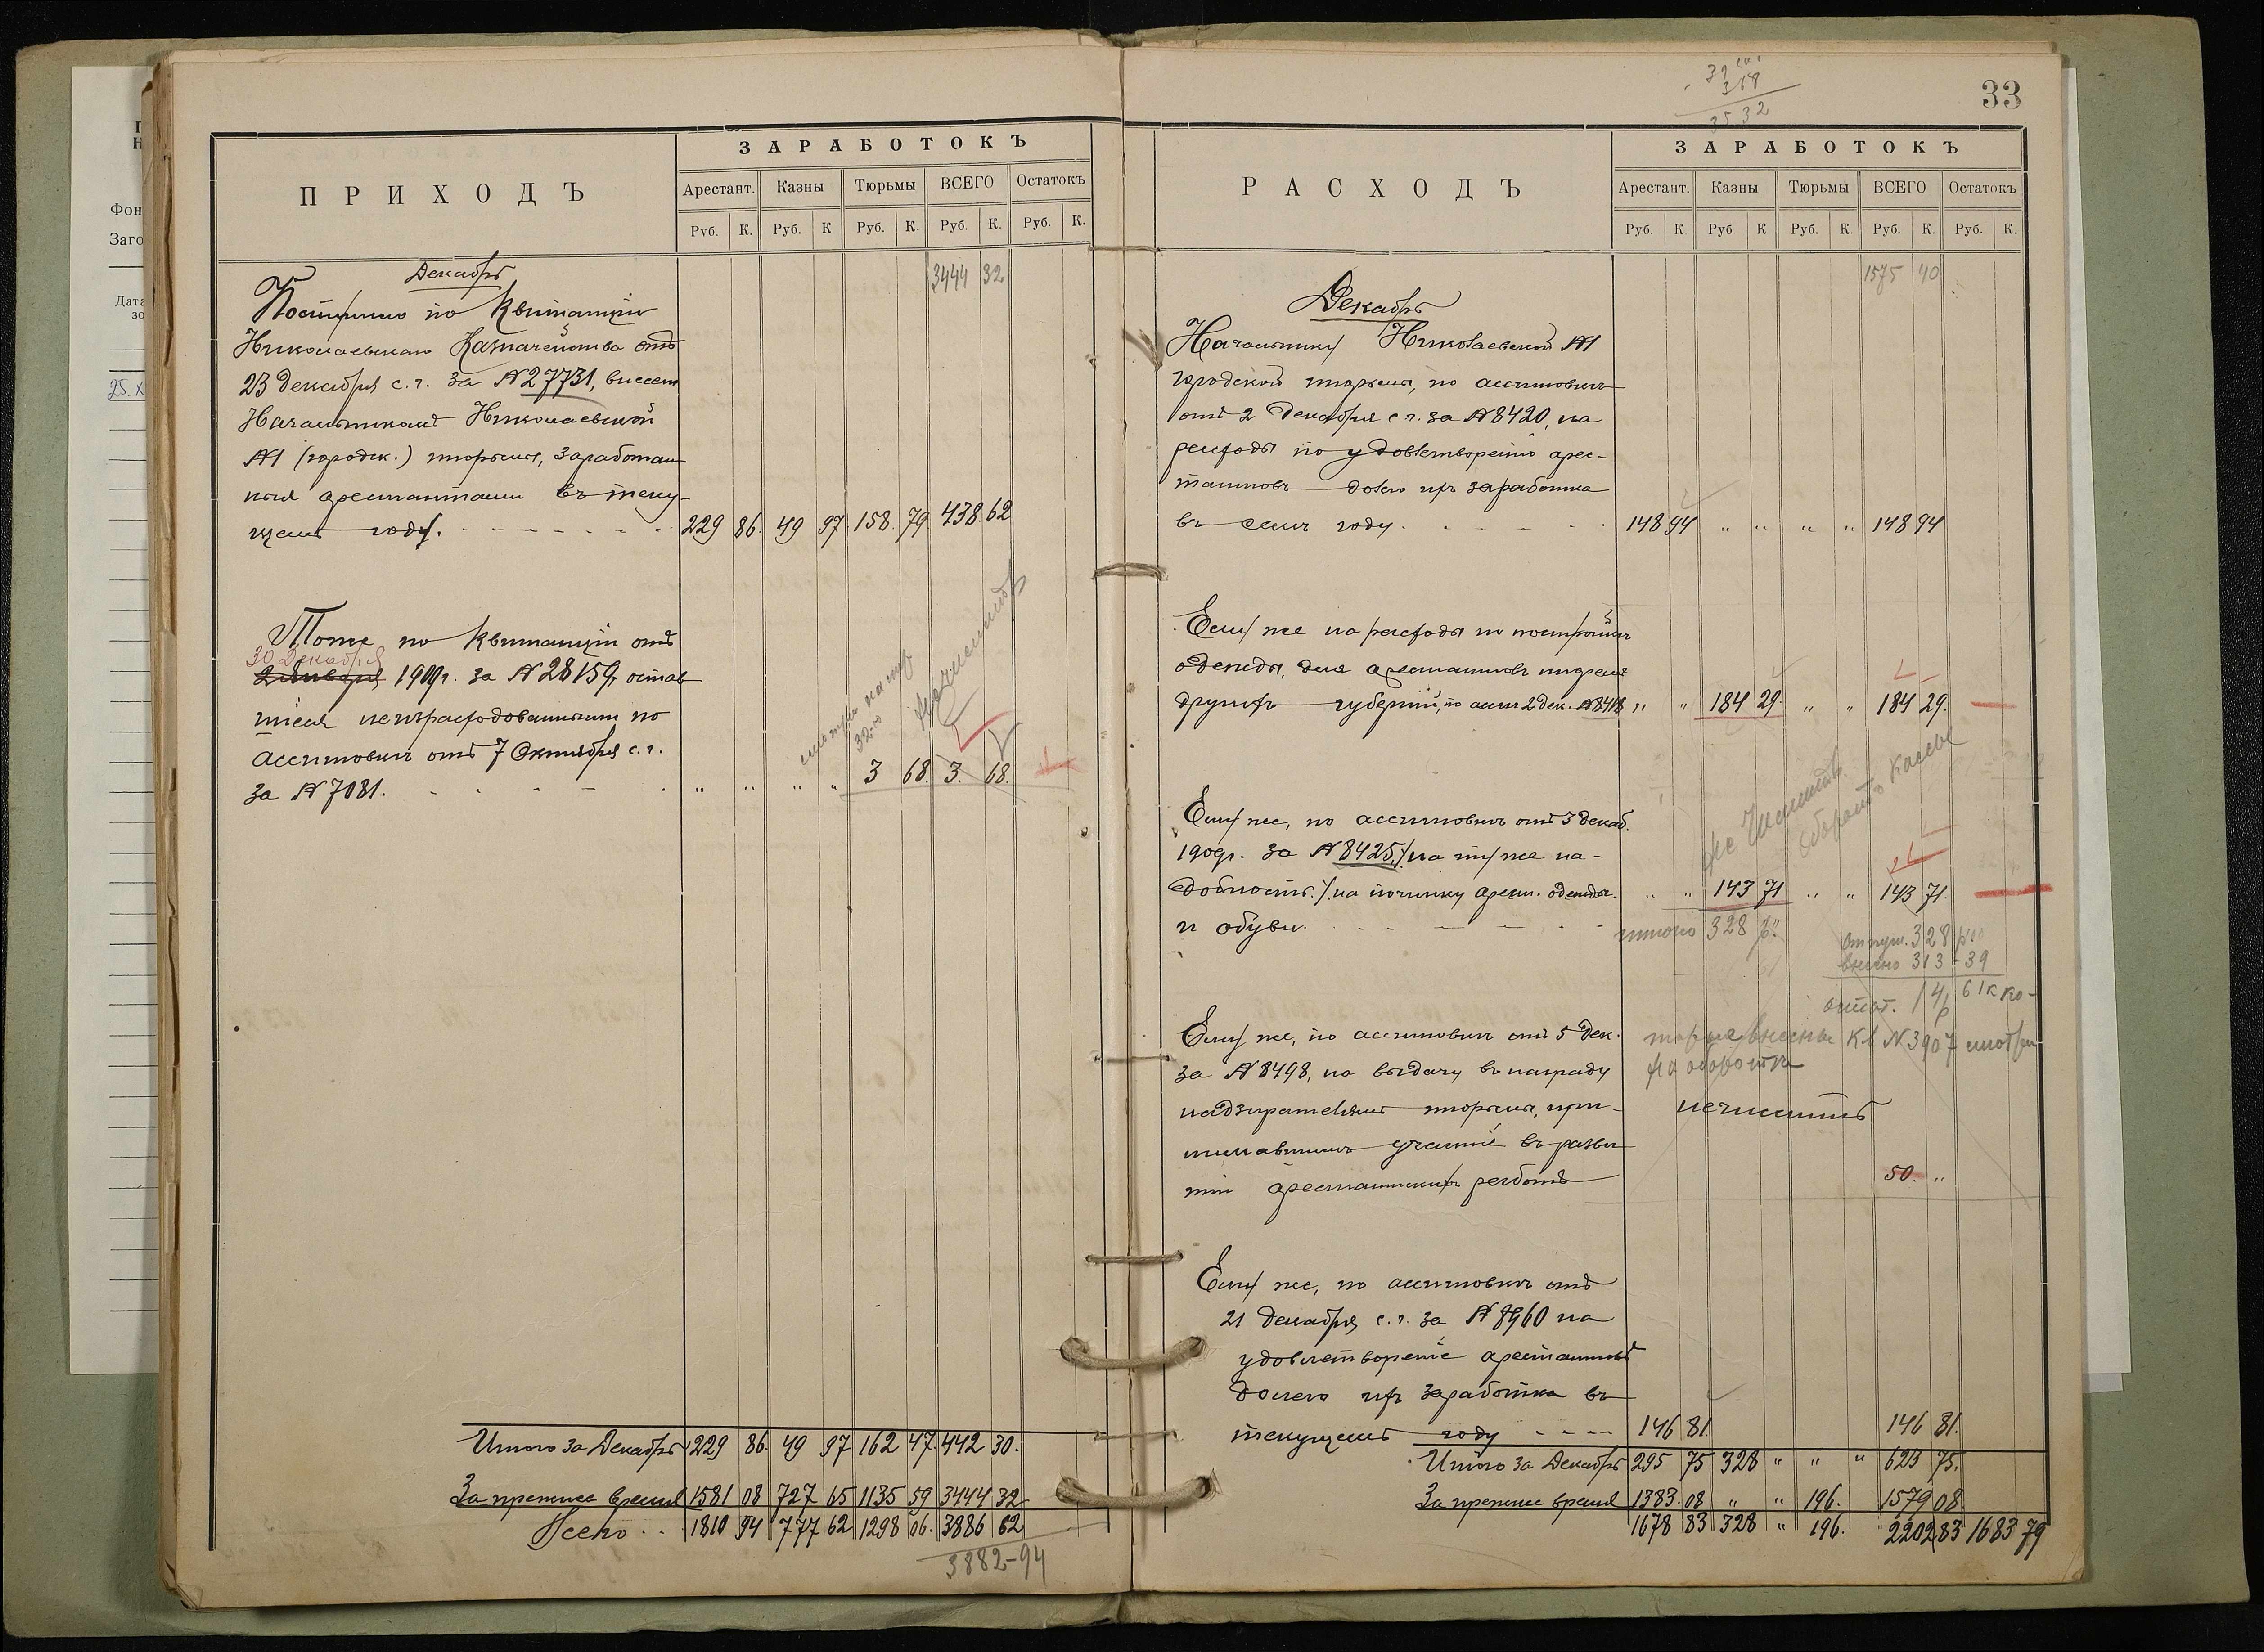 П
Н
Фон
Заго
Дата
зо
25. X
ПРИХОДЪ
ЗАРАБОТОКЪ
Арестант. Казны Тюрьмы ВСЕГО Остатокъ
Руб. К. Руб. К Руб. К. Руб. К. Руб. К.
Декабрь
3444 32
Поступило по квитанціи
Николаевскаго Казначейства отъ
23 декабря с. г. за №27731, внесен
Начальникомъ Николаевской
№1 (городск.) тюрьмы, заработан
ныя арестантами въ теку-
щемъ году. 229 86. 49 97 158. 79 438 62
Тоже по квитанціи отъ
30 Декабря
2 Января 1909г. за №28159, остав
шіеся неизрасходованными по
ассигновкѣ отъ 7 Октября с. г.
за №7081. " " " " 3 68. 3. 68.
смотри на стр
32-ю
Итого за Декабрь 229 86 49 97 162 47. 442 30.
За прежнее время 1581 08 727 65 1135 59 3444 32
Всего 1810 94 777 62 1298 06. 3886 62
3882-94
35 32
33
РАСХОДЪ
ЗАРАБОТОКЪ
Арестант. Казны Тюрьмы ВСЕГО Остатокъ
Руб. К Руб К Руб. К. Руб. К. Руб. К.
1575 40
Декабрь
Начальнику Николаевской №1
городской тюрьмы, по ассигновкѣ
отъ 2 Декабря с г. за №8420, на
расходы по удовлетворенію арес-
тантовъ долею ихъ заработка
въ семъ году. 148 94 " " " " 148 94
Ему же на расходы по постройкѣ
одежды для арестантовъ тюремъ
другихъ губерній, по ассиг 2 дек. №8418 " " 184 29. " " 184 29.
Ему же, по ассигновкѣ отъ 3 декаб.
1909г. за №8425, на ту же на-
добность. на починку арест. одежды " " 143 71 " " 143 71.
и обуви.
итого 328 р.
отпущ. 328 р
внесено 313-39
остат. 14 р 61к ко-
торые внесены кв №3907 смотри
на оборотѣ
Ему же, по ассигновкѣ отъ 5 Дек.
за №8498, на выдачу въ награду
надзирателямъ тюрьмы, при-
нимавшимъ участіе въ разви
тіи арестантскихъ работъ 50. "
не числить
Ему же, по ассигновкѣ отъ
21 декабря с. г. за №8960 на
удовлетвореніе арестантовъ
долею ихъ заработка въ
текущемъ году 146 81. 146 81.
Итого за Декабрь 295 75 328 " " " 623 75.
За прежнее время 1383. 08 " " 196. 1579 08
1678 83 328 " 196. " 2202 83 1683 79